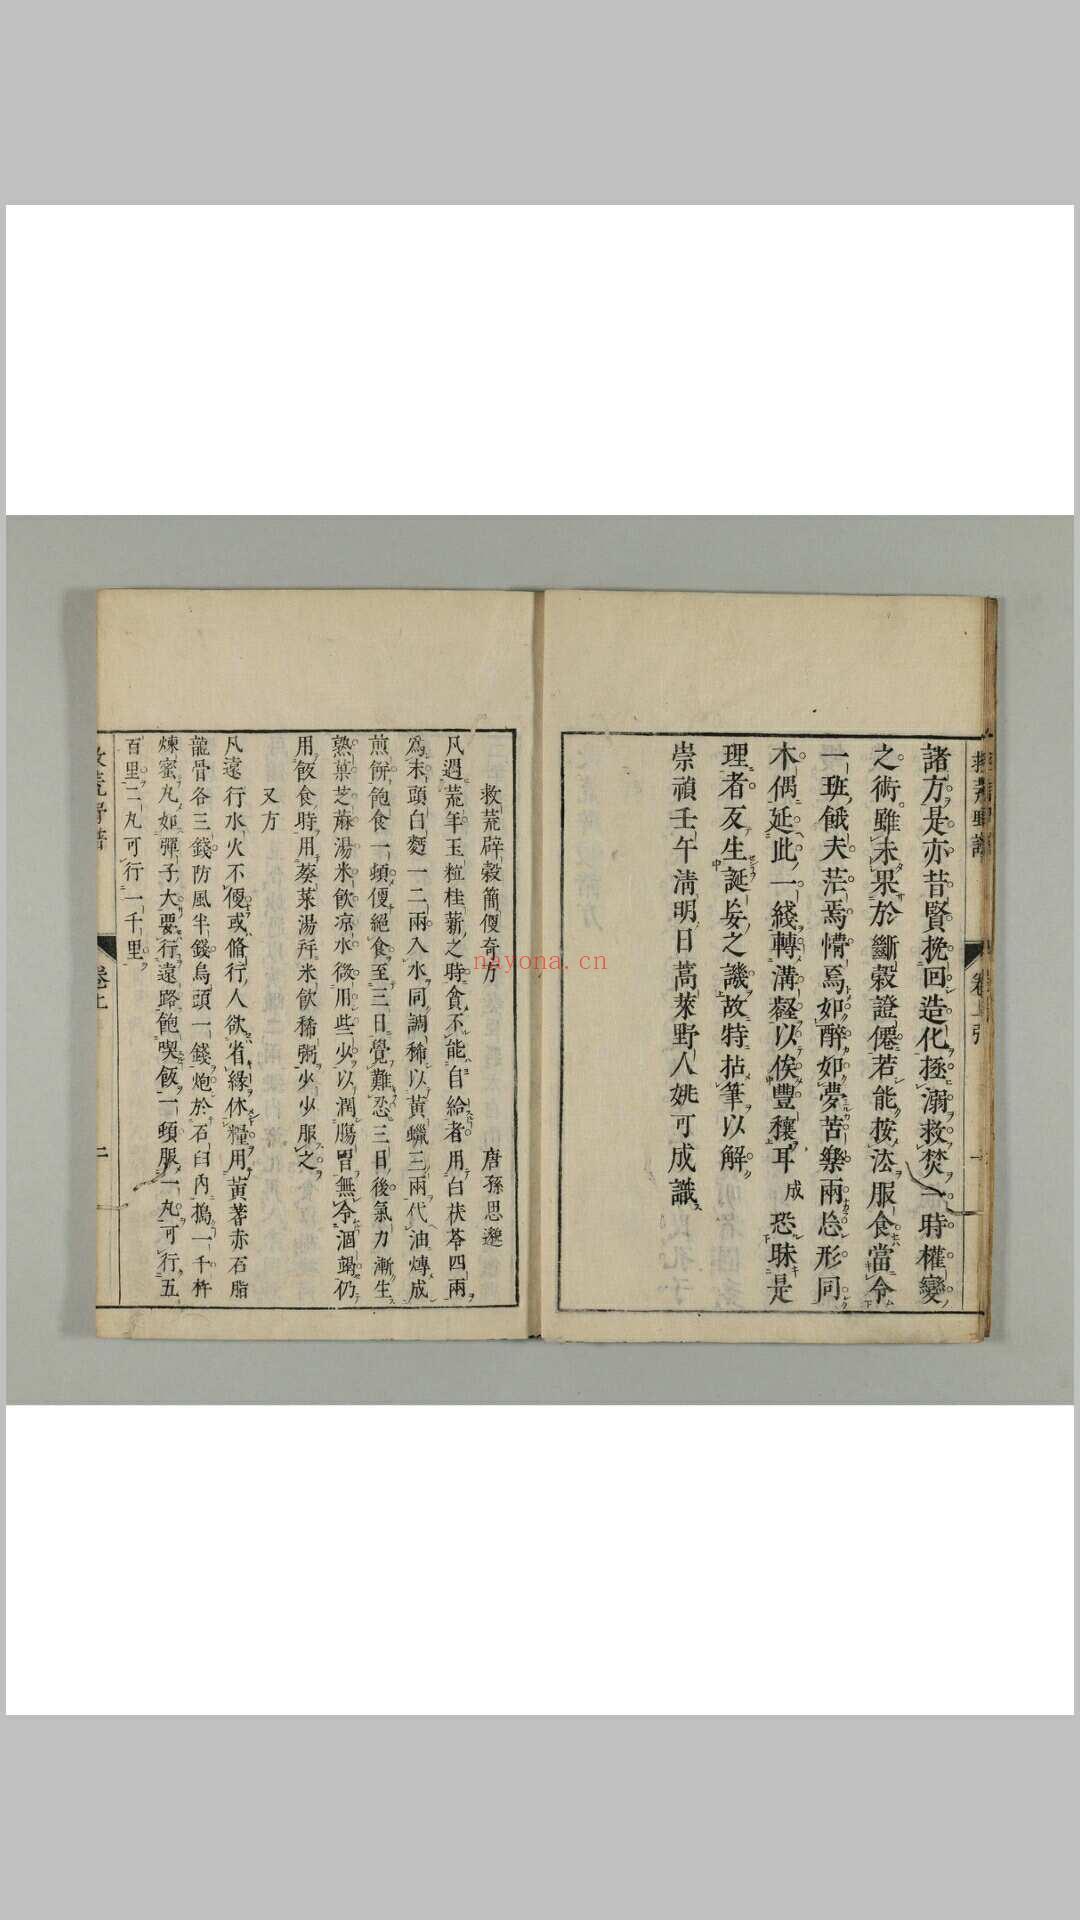 諸方是亦昔賢挽回造化拯溺救焚一時權變
之術雖未果於斷穀證僊若能按法服食當令
一班餓夫茫焉惛焉如醉如夢苦樂兩忘形同
木偶延此一綫轉溝壑以俟豐穰耳成恐昧是
理者反生誕妄之譏故特拈筆以解
崇禎壬午淸明日蒿萊野人姚可成識
救荒辟穀簡便奇方 唐孫思邈
凡遇荒年玉粒桂薪之時貧不能自給者用白茯苓四兩
爲末頭白麪一二兩入水同調稀以黃蠟三兩代油煿成
煎餅飽食一頓便絕食至三日覺難忍三日後氣力漸生
熟菓芝蔴湯米飮凉水微用些少以潤腸胃無令涸竭仍
用飯食時用葵菜湯并米飮稀粥少少服之
又方
凡遠行水火不便或脩行人欲省緣休糧用黃蓍赤石脂
龍骨各三錢防風半錢烏頭一錢炮於石臼內搗一千杵
煉蜜丸如彈子大要行遠路飽喫飯一頓服一丸可行五
百里二丸可行一千里
卷上
二
nayona.cn